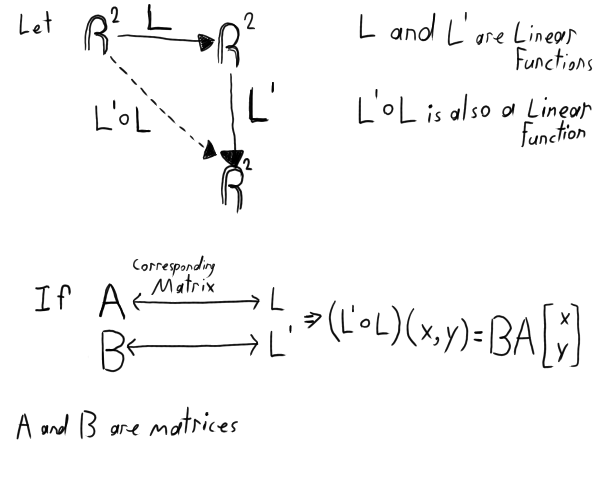 Let ℝ² L ℝ²
L'∘L L'
ℝ²
L and L' are Linear
Functions
L'∘L is also a Linear
Function
Corresponding
Matrix
If A ⟷ L
B ⟷ L'
⇒ (L'∘L)(x,y)=BA[x
y]
A and B are matrices